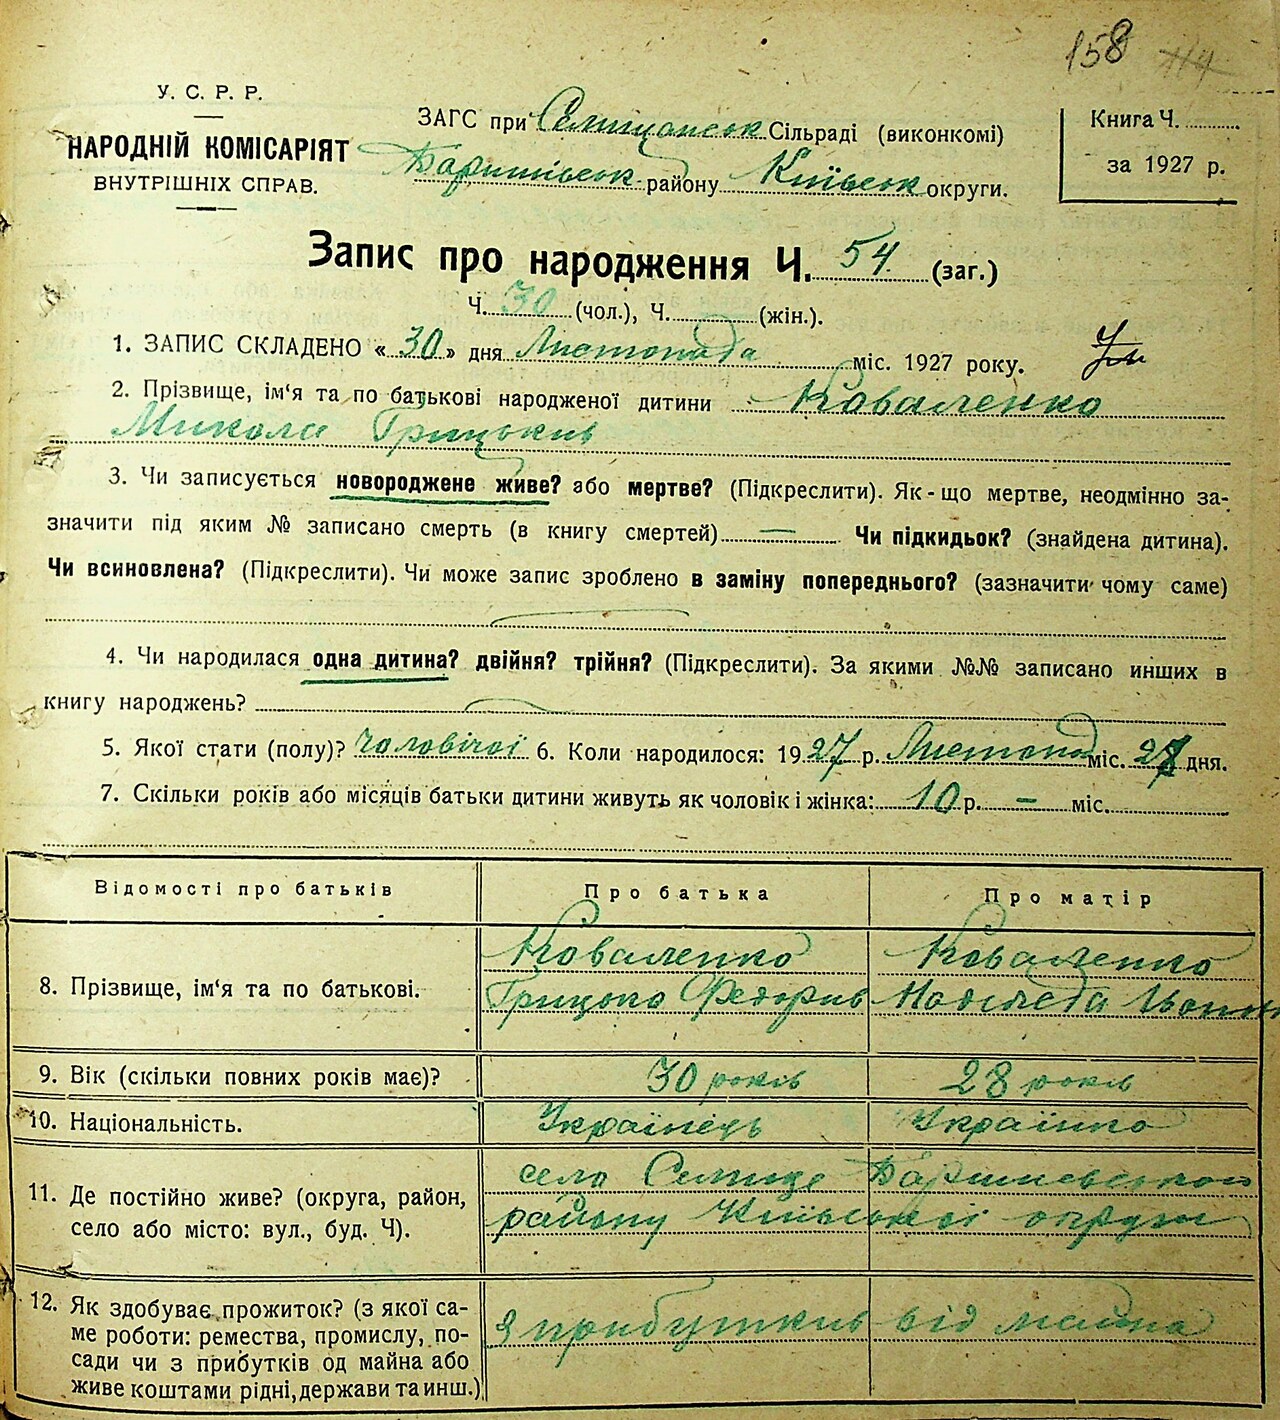 158 114
У. С. Р. Р.
НАРОДНІЙ КОМІСАРІЯТ
ВНУТРІШНІХ СПРАВ.
ЗАГС при Селищанськ Сільраді (виконкомі)
Баришівськ району Київськ округи.
Книга Ч.
за 1927 р.
Запис про народження Ч. 54 (заг.)
Ч. 30 (чол.), Ч. (жін.).
1. ЗАПИС СКЛАДЕНО « 30 » дня Листопада міс. 1927 року.
2. Прізвище, ім'я та по батькові народженої дитини Коваленко
Микола Грицьків
3. Чи записується новороджене живе? або мертве? (Підкреслити). Як-що мертве, неодмінно за-
значити під яким № записано смерть (в книгу смертей) — Чи підкидьок? (знайдена дитина).
Чи всиновлена? (Підкреслити). Чи може запис зроблено в заміну попереднього? (зазначити чому саме)
4. Чи народилася одна дитина? двійня? трійня? (Підкреслити). За якими №№ записано инших в
книгу народжень?
5. Якої стати (полу)? чоловічої 6. Коли народилося: 1927 р. Листопад міс. 27 дня.
7. Скільки років або місяців батьки дитини живуть як чоловік і жінка: 10 р. — міс.
Відомості про батьків Про батька Про матір
8. Прізвище, ім'я та по батькові.
Коваленко Коваленко
Грицько Федорів Надежда Іван
9. Вік (скільки повних років має)? 30 років 28 років
10. Національність. Українець Українка
11. Де постійно живе? (округа, район,
село або місто: вул., буд. Ч).
село Селище Баришевського
району Київської округи
12. Як здобуває прожиток? (з якої са-
ме роботи: ремества, промислу, по-
сади чи з прибутків од майна або
живе коштами рідні, держави та инш.)
З прибутків від майна